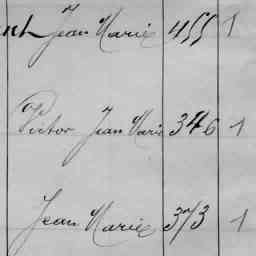 nh Jean Marie 455 1
Victor Jean Marie 346 1
Jean Marie 373 1